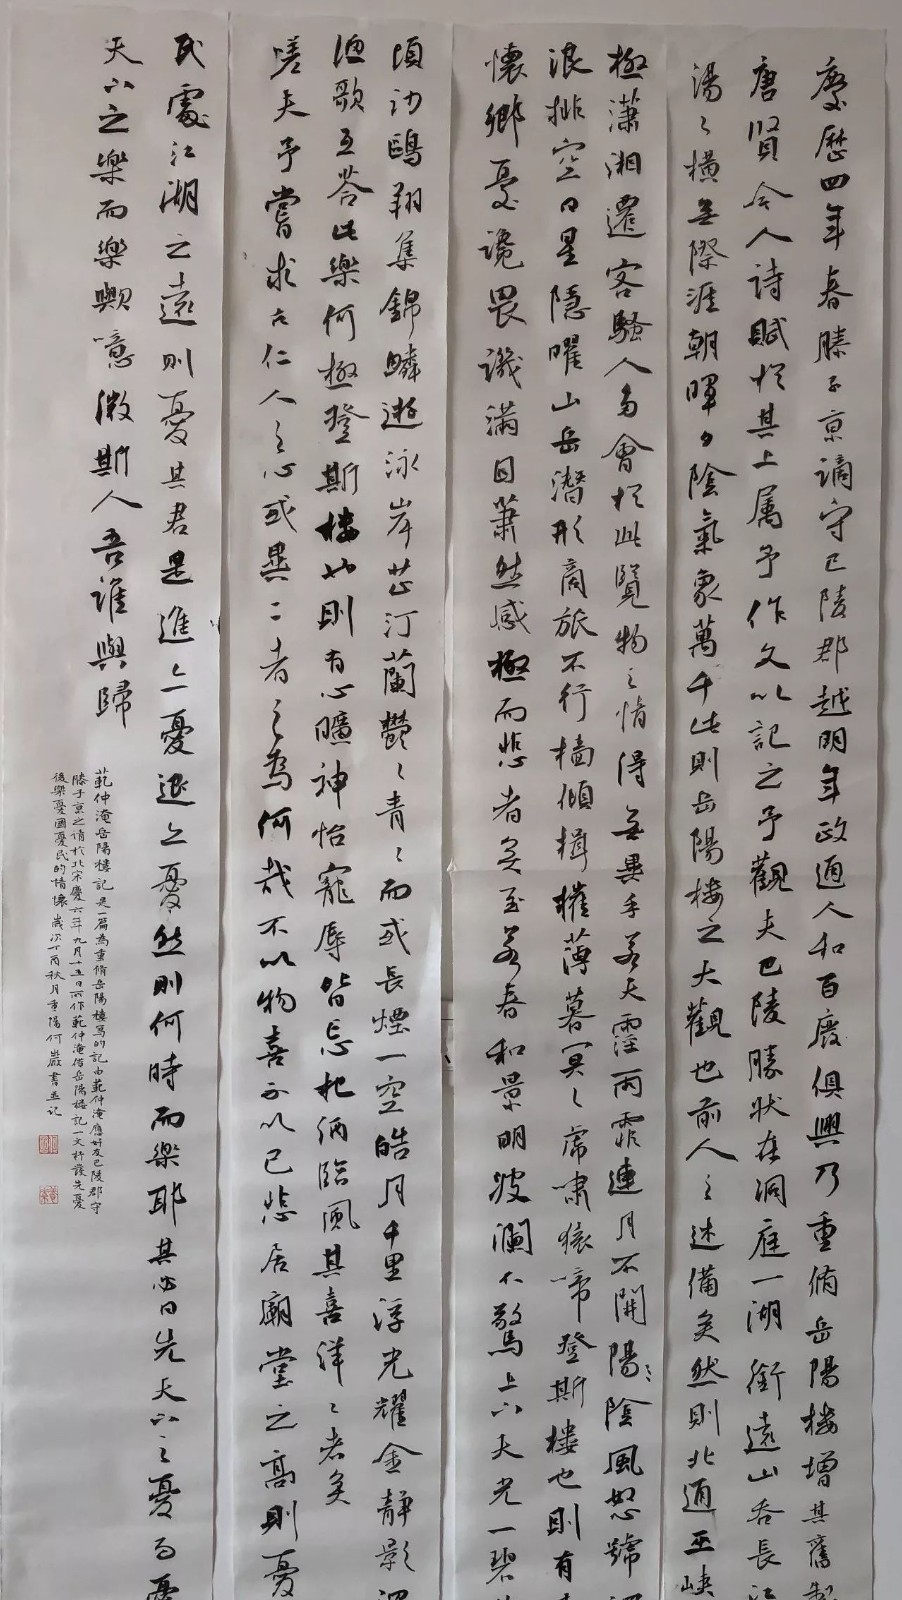 慶歷四年春滕子京謫守巴陵郡越明年政通人和百廢俱興乃重脩岳陽樓增其舊製
唐賢今人詩賦於其上属予作文以記之予觀夫巴陵勝狀在洞庭一湖銜遠山吞長江
湯〻橫無際涯朝暉夕陰氣象萬千此則岳陽樓之大觀也前人之述備矣然則北通巫峽
極瀟湘遷客騷人多會於此覽物之情得無異乎若夫霪雨霏連月不開陽〻陰風怒號
浪排空日星隱曜山岳潛形商旅不行檣傾楫摧薄暮冥〻虎嘯猿啼登斯樓也則有
懷鄉憂讒畏譏滿目蕭然感極而悲者矣至若春和景明波瀾不驚上下天光一碧
頃沙鷗翔集錦鱗遊泳岸芷汀蘭鬱〻青〻而或長煙一空皓月千里浮光耀金靜影
漁歌互答此樂何極登斯樓也則有心曠神怡寵辱皆忘把酒臨風其喜洋〻者矣
嗟夫予嘗求古仁人之心或異二者之為何哉不以物喜不以己悲居廟堂之高則憂
民處江湖之遠則憂其君是進亦憂退亦憂然則何時而樂耶其必曰先天下之憂而憂
天下之樂而樂歟噫微斯人吾誰與歸
范仲淹岳陽樓記是一篇為重脩岳陽樓寫的記由范仲淹應好友巴陵郡守
滕子京之請於北宋慶六年九月十五日所作范仲淹借岳陽樓記一文抒發先憂
後樂憂國憂民的情懷歲次丁酉秋月重陽何巖書並記